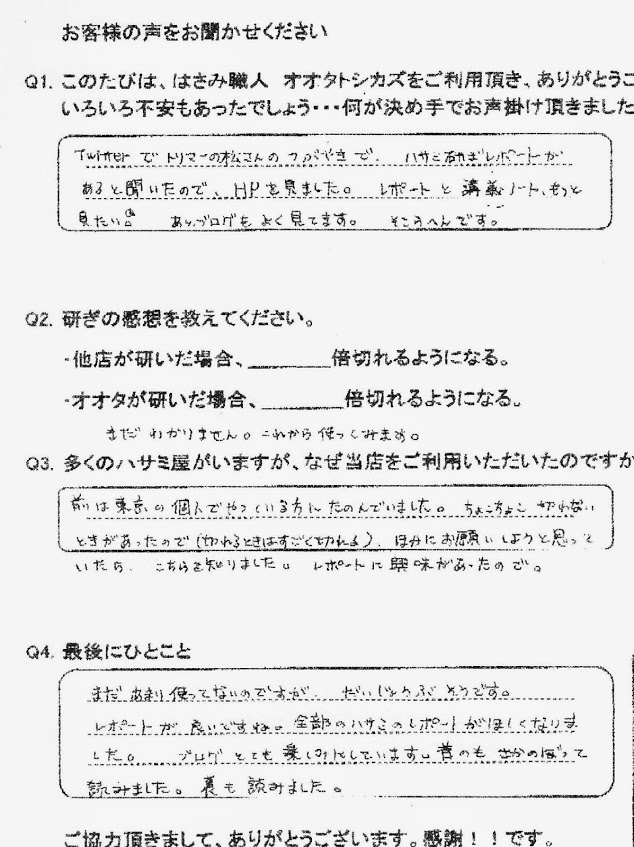 お客様の声をお聞かせください
Q1. このたびは、はさみ職人 オオタトシカズをご利用頂き、ありがとうご
いろいろ不安もあったでしょう・・・何が決め手でお声掛け頂きました
Twitterで トリマーの松さんの つぶやきで、 ハサミ研ぎレポートが
あると聞いたので、HPを見ました。 レポートと 講義ノート、もっと
見たい あっ、ブログも よく見てます。 そこらへんです。
Q2. 研ぎの感想を教えてください。
・他店が研いだ場合、________倍切れるようになる。
・オオタが研いだ場合、________倍切れるようになる。
まだ わかりません。これから使ってみます。
Q3. 多くのハサミ屋がいますが、なぜ当店をご利用いただいたのですか
前は東京の個人でやっている方にたのんでいました。ちょこちょこ 切れない
ときがあったので(切れるときはすごく切れる)、ほかにお願いしようと思って
いたら、こちらを知りました。 レポートに 興味があったので。
Q4. 最後にひとこと
まだ あまり使ってないのですが、 だいじょうぶ そうです。
レポートが 良いですね。全部のハサミのレポートがほしくなりま
した。 ブログ とても 楽しみにしています。昔のも さかのぼって
読みました。裏も 読みました。
ご協力頂きまして、ありがとうございます。感謝！！です。